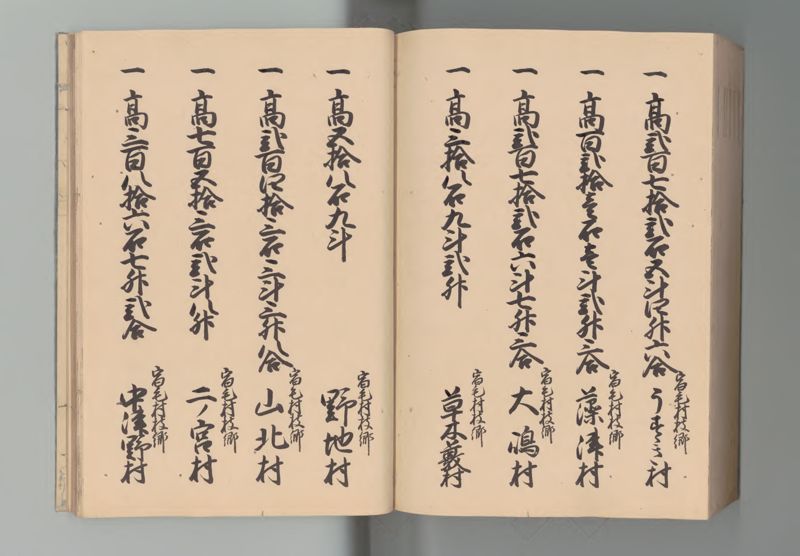 一 高弐百七拾弐石五斗四升六合 宿毛村枝郷 うすき村
一 高百弐拾壱石壱斗弐升三合 宿毛村枝郷 藻津村
一 高弐百七拾弐石六斗七升三合 宿毛村枝郷 大嶋村
一 高三拾八石九斗弐升 宿毛村枝郷 草木藪村
一 高五拾八石九斗 宿毛村枝郷 野地村
一 高弐百四拾三石三斗三升八合 宿毛村枝郷 山北村
一 高七百五拾三石弐斗八升 宿毛村枝郷 二ノ宮村
一 高三百八拾六石七升弐合 宿毛村枝郷 中津野村